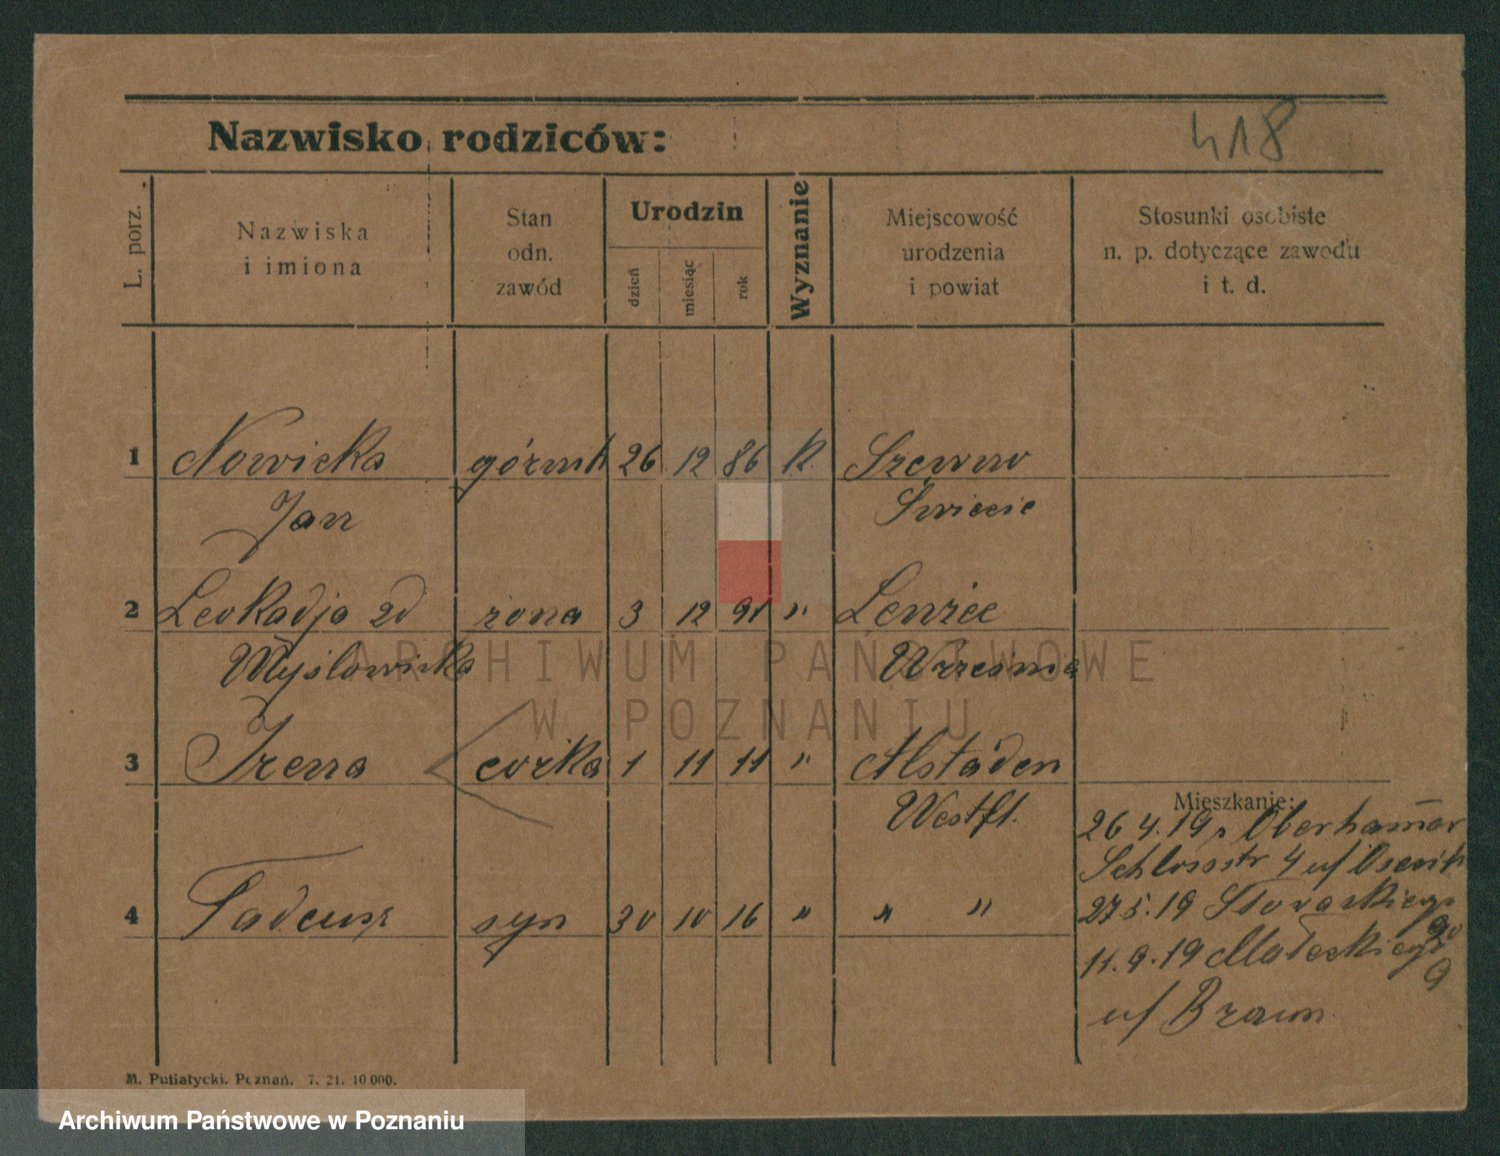 Nazwisko rodziców:
418
L. porz.
Nazwiska
i imiona
Stan
odn.
zawód
Urodzin
dzień
miesiąc
rok
Wyznanie
Miejscowość
urodzenia
i powiat
Stosunki osobiste
n. p. dotyczące zawodu
i t. d.
1 Nowicka górnik 26 12 86 K.
Jan Świecie
2 Leokadja zd żona 3 12 91 "
Mysłowicka Września
3 Irena córka 1 11 11 " Alstaden
Westfl.
Mieszkanie:
26 4. 19
Schlossstr 4 u/
4 Tadeusz syn 30 10 16 " " "
27 5. 19
11. 9. 19 Małeckiego
9
u/ Braun
M. Putiatycki. Poznań. 7. 21. 10 000.
ARCHIWUM PAŃSTWOWE
W POZNANIU
Archiwum Państwowe w Poznaniu